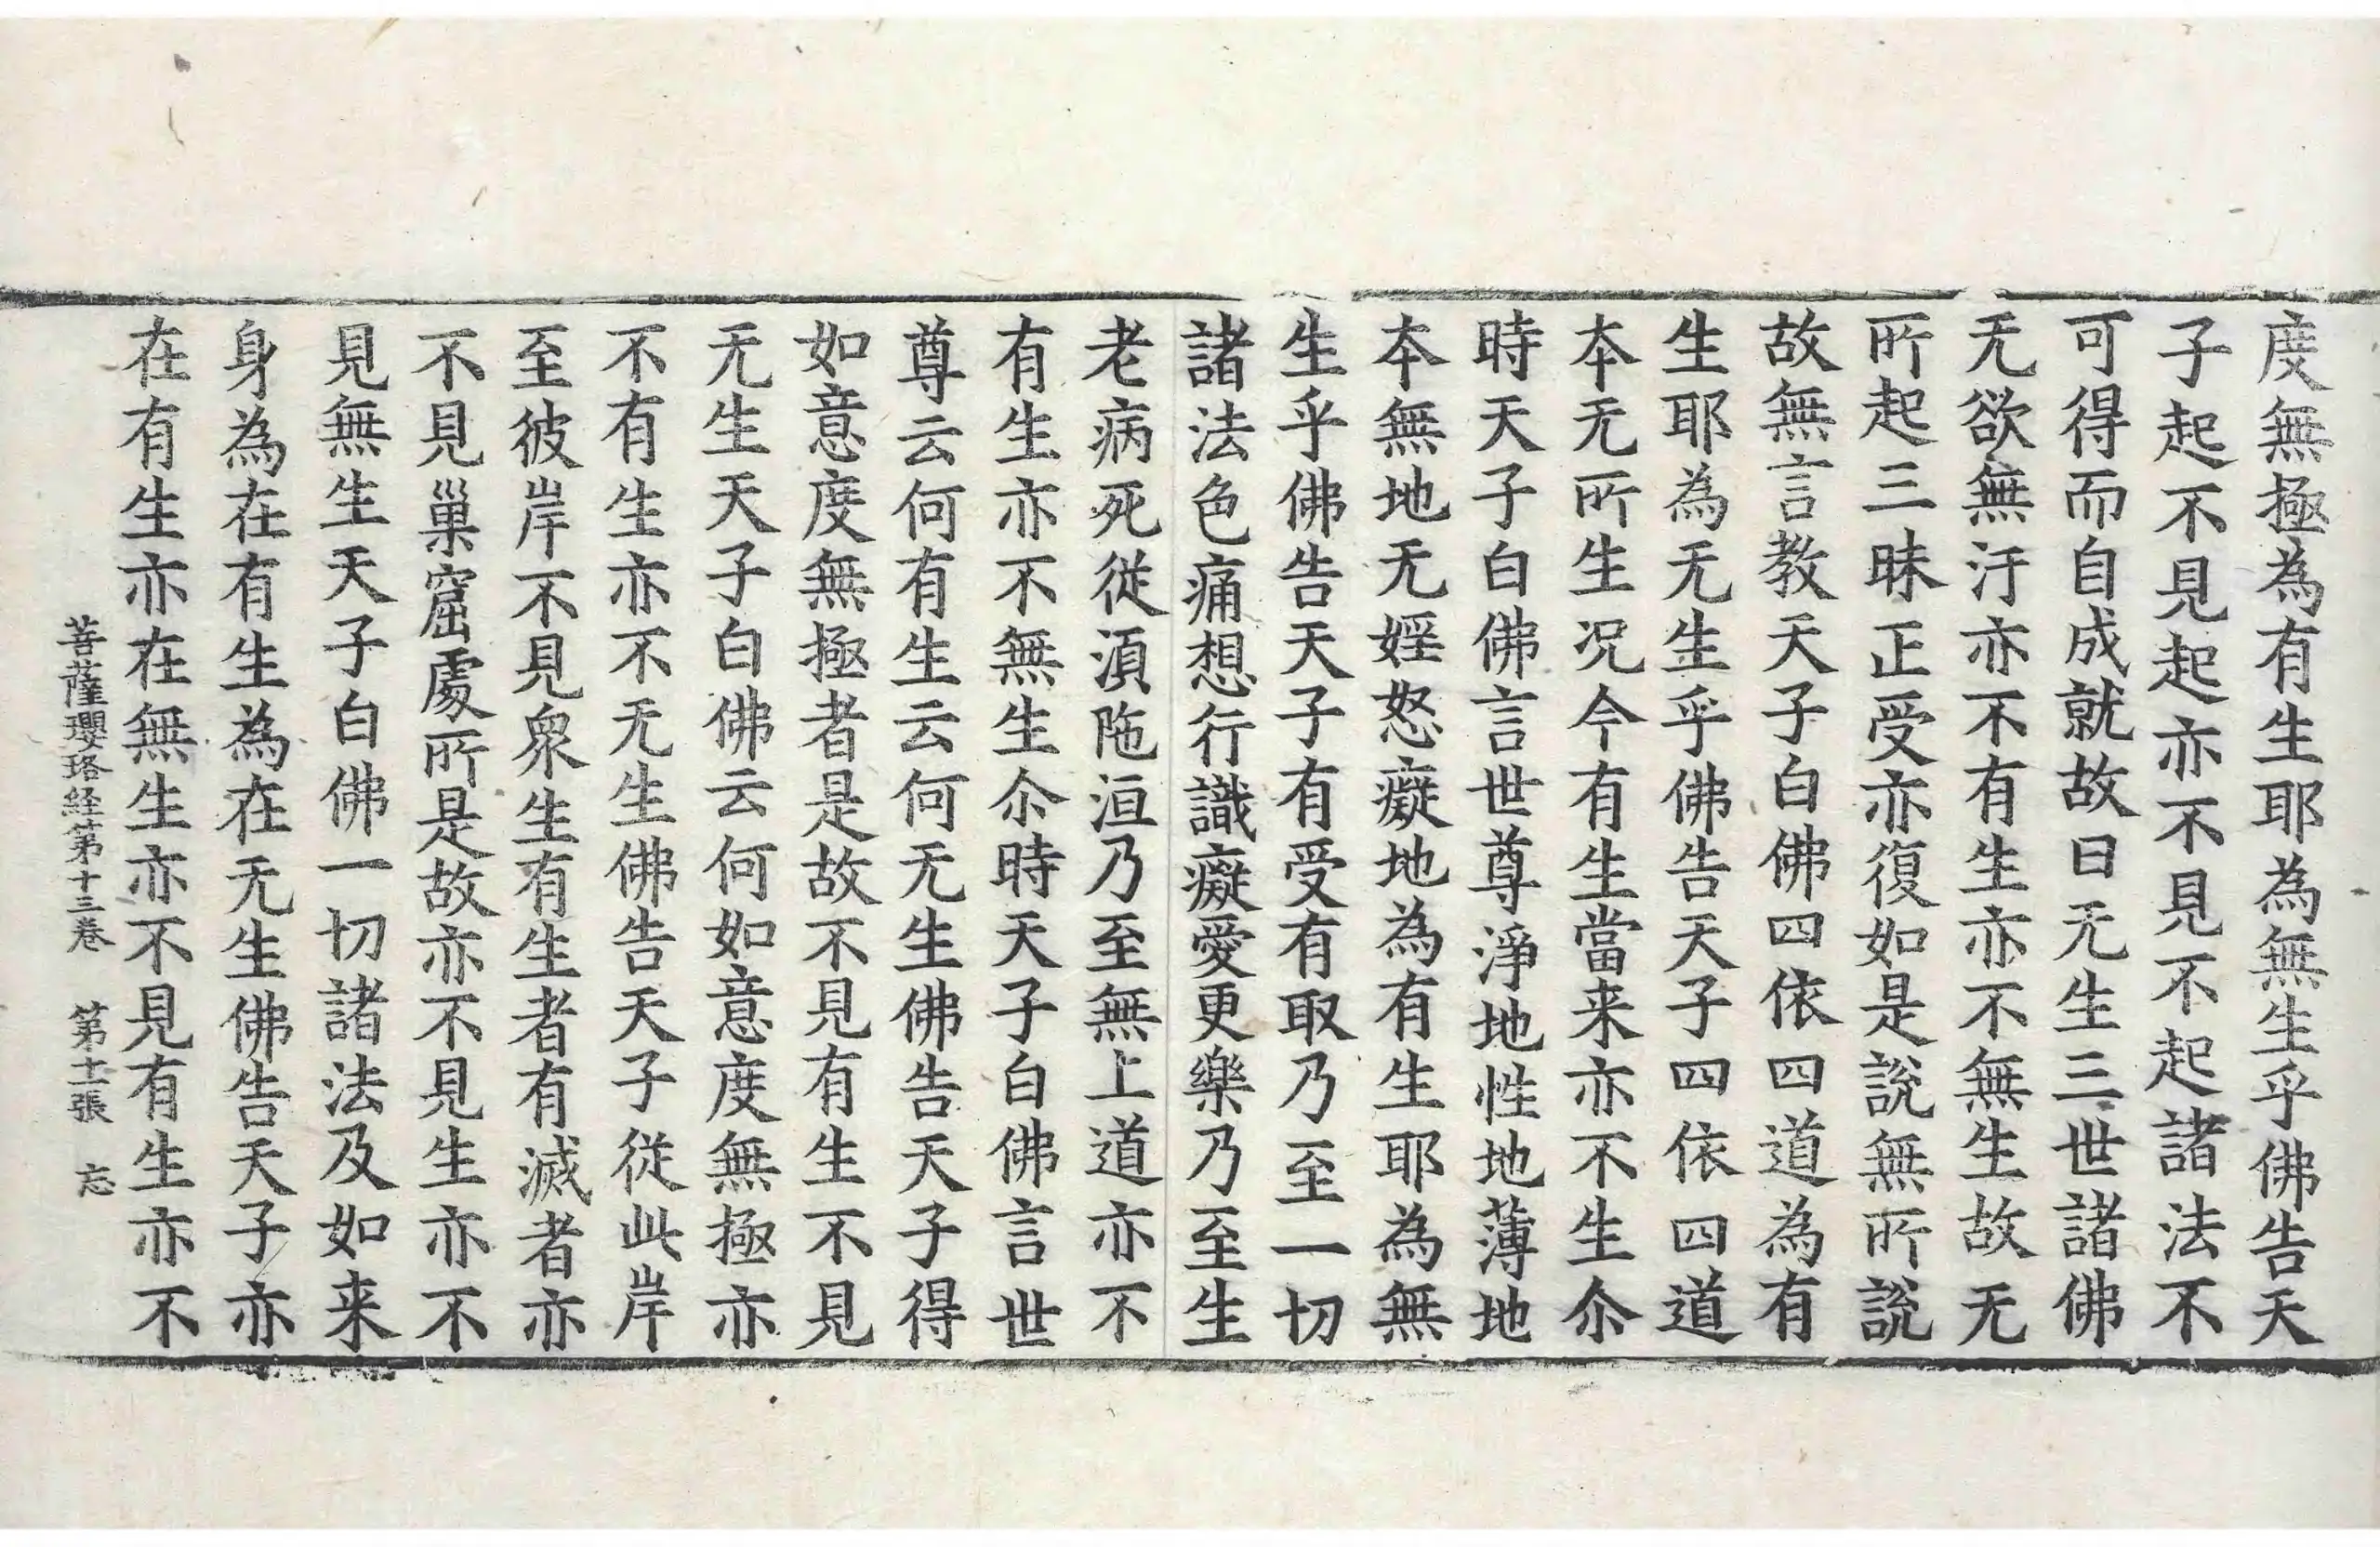 度無極為有生耶為無生乎佛告天
子起不見起亦不見不起諸法不
可得而自成就故曰无生三世諸佛
无欲無汙亦不有生亦不無生故无
所起三昧正受亦復如是說無所說
故無言教天子白佛四依四道為有
生耶為无生乎佛告天子四依四道
本无所生况今有生當来亦不生尒
時天子白佛言世尊淨地性地薄地
本無地无婬怒癡地為有生耶為無
生乎佛告天子有受有取乃至一切
諸法色痛想行識癡愛更樂乃至生
老病死從湏陁洹乃至無上道亦不
有生亦不無生尒時天子白佛言世
尊云何有生云何无生佛告天子得
如意度無極者是故不見有生不見
无生天子白佛云何如意度無極亦
不有生亦不无生佛告天子從此岸
至彼岸不見衆生有生者有滅者亦
不見巢窟處所是故亦不見生亦不
見無生天子白佛一切諸法及如来
身為在有生為在无生佛告天子亦
在有生亦在無生亦不見有生亦不
菩薩瓔珞経第十三卷 第十一張 忘